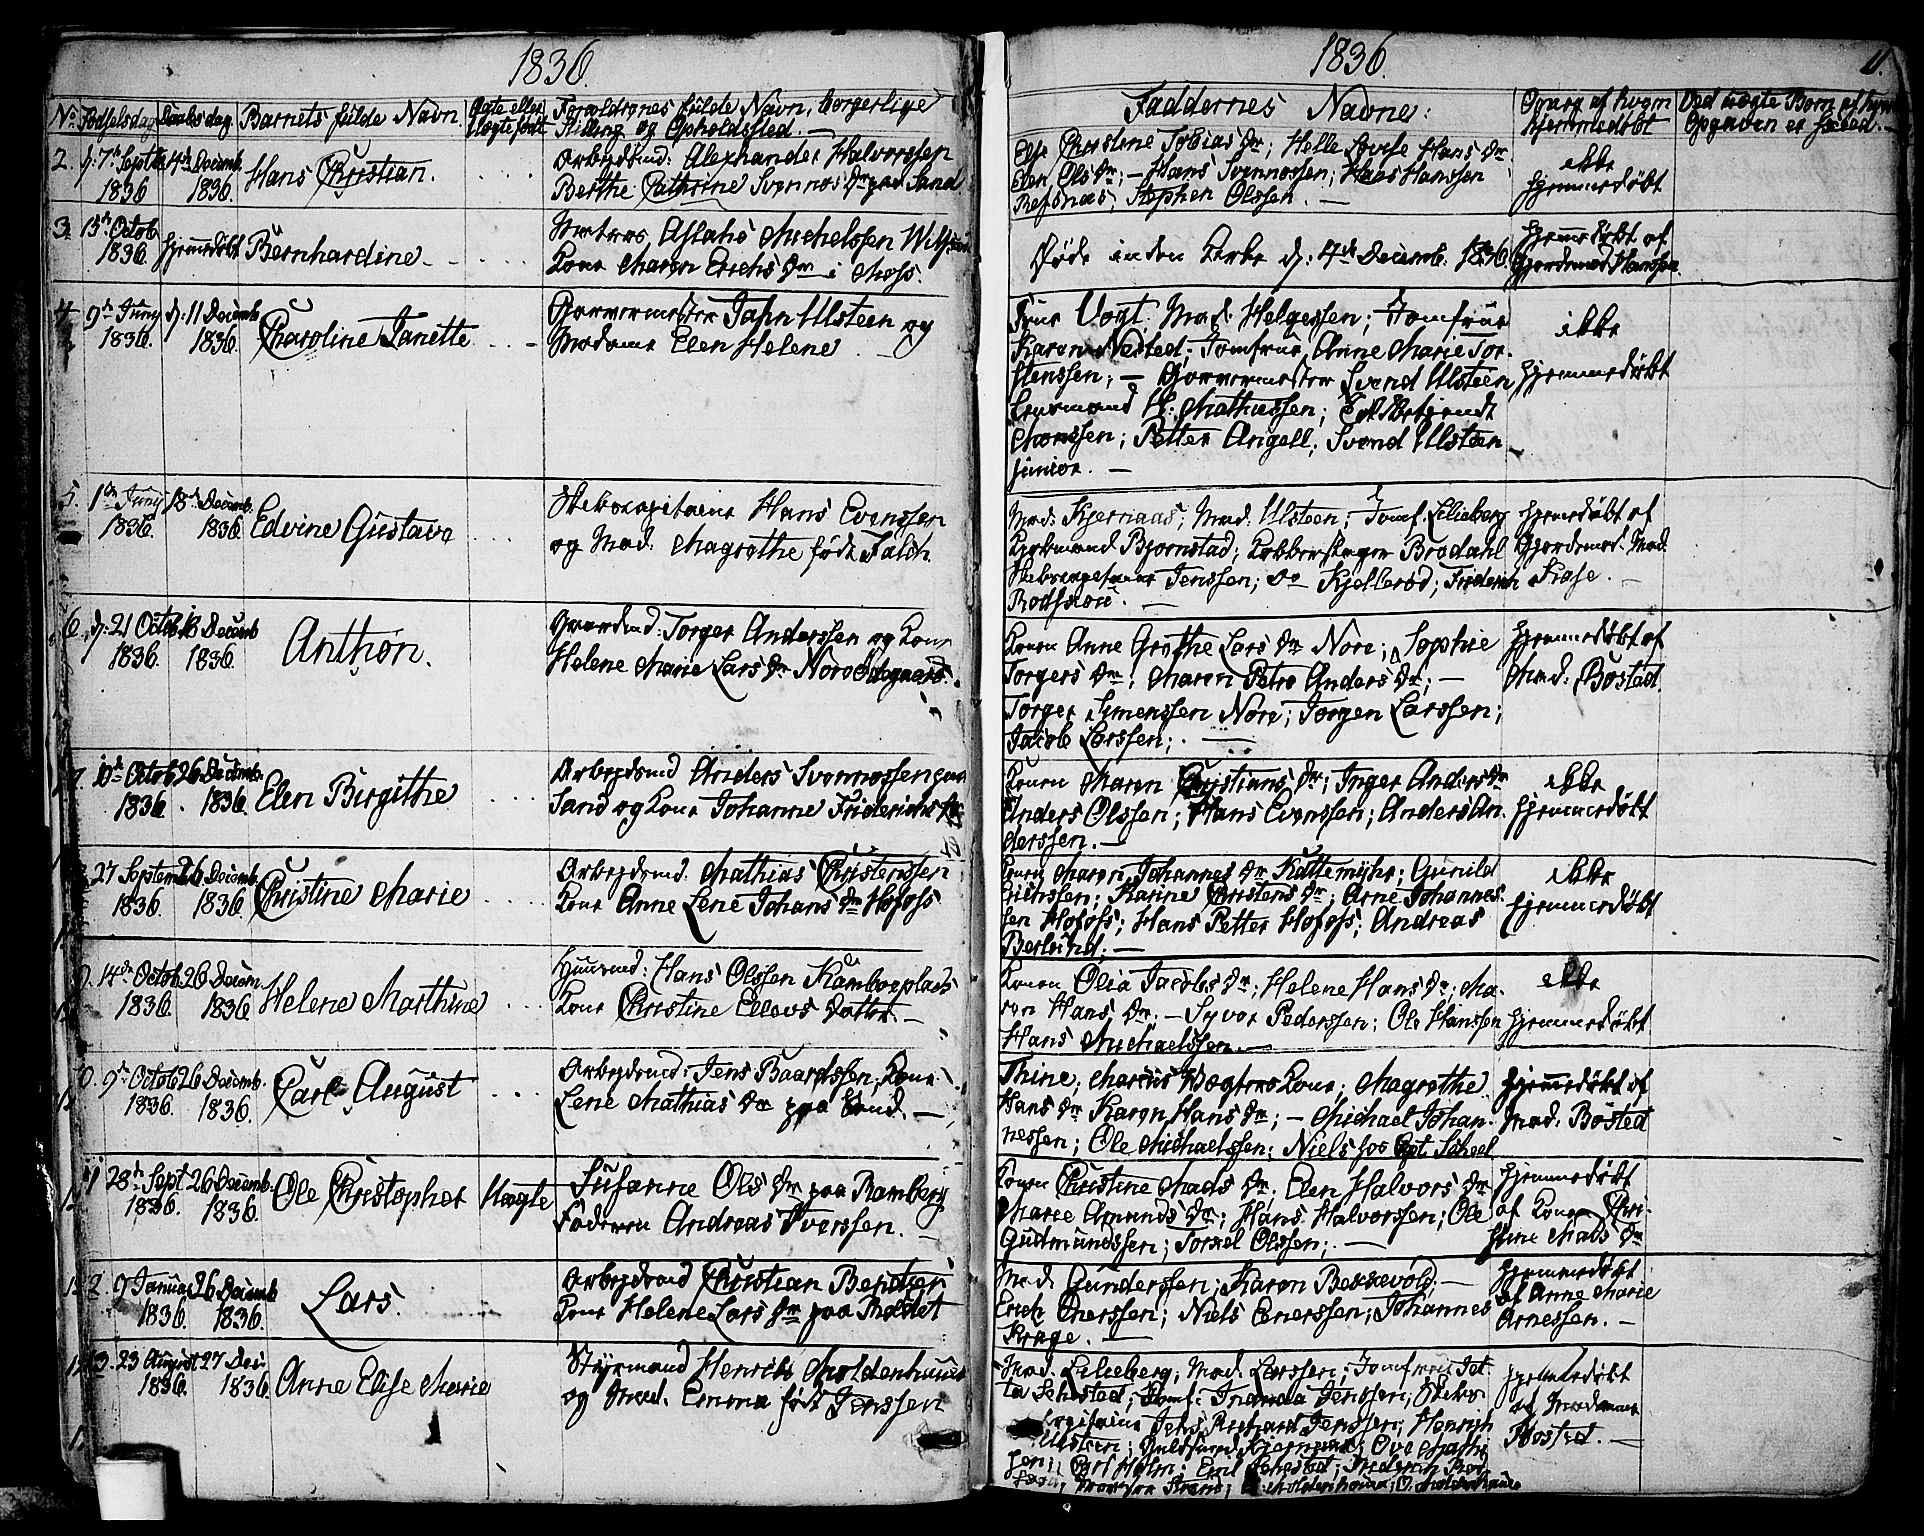 1836
No Fødselsdag Daabsdag. Barnets fulde Navn. Ægte eller Uægte født Forældrenes fulde Navn, borgerlige Stilling og Opholdsted. —
2. d: 7de Septbr 1836 4de Decemb. 1836. Hans Christian. Arbejdsmd: Alexander Halvorssen
Berthe Cathrine Svennos Dr paa Sand
3. 13de Octob 1836. hjemmedøbt Bernhardine. Aslach Michelssen
Kone Maren Erichs Dr i Moss.
4 9de Juny 1836. d: 11 Decemb 1836. Charoline Janette Garvermester Jahn Ulsteen og
Madame Elen Helene
5. 1ste Juny 1836. 18de Decemb. 1836. Edvine Gustava Skibscapitaine Hans Evenssen
og Mad. Magrethe født Falch.
6. d: 21 Octob 1836. 18 Decemb 1836. Anthon. Gaardmd: Torger Anderssen og Kone
Helene Marie Lars Dr Nore Ødegaard.
7. 10de Octob 1836. 26 Decemb. 1836. Elen Birgithe Arbejdsmd Anders Svennossen paa
Sand og Kone Johanne Friderichs
27 Septemb 1836. 26 Decemb. 1836. Christine Marie Arbejdsmd. Mathias Christenssen
Kone Anne Lene Johans Dr Hofoss
9. 14de Octob 1836. 26 Decem. 1836. Helene Marthine Huusmd: Hans Olssen Kamboeplads
Kone Christine Ellevs Datter —
10. 9de Octob 1836. 26 Decemb. 1836. Carl August Arbejdsmd: Jens Baardssen, Kone
Lene Mathias Dr paa Sand. —
11 28de Sept 1836. 26 Decemb. 1836. Ole Christopher Uægte Susanne Ols Dr paa Ramberg
Faderen Andreas Iverssen.
12 9 Januar 1836. 26 Decemb 1836. Lars. Arbejdsmd Christian Bentzen
Kone Helene Lars Dr paa Molstet
13. 23 August 1836. 27 Dec. 1836. Anne Elise Marie Styrmand Henrich Moldenhauer
og Mad. Emma født Jenssen
1836. 11.
Faddernes Navne: Opgave af hvem hjemmedøbt Ved uægte Børn af hvem Opgaven er skeed. —
Else Christine Tobias Dr; Helle Lovise Hans Dr.
Elen Ols Dr; — Hans Svennossen; Haas Hanssen
Refsnæs; Stephen Olssen. — ikke hjemmedøbt
Døde inden Kirke d: 4de Decemb. 1836. hjemmedøbt af Gjordemod: Hanssen.
Frue Vogt. Mad. Helgessen; Jomfrue
Karen Nested; Jomfrue Anne Marie Tor-
stenssen; — Garvermester Svend Ulsteen
H. Mathiessen;
Monssen; Petter Angell; Svend Ulsteen
junior. — ikke hjemmedøbt
Mad: Kjernaas; Mad. Ulsteen; Jomf. Lilieberg
Bjørnstad; Kobberslager Brodahl
Skibscapitaine Jenssen; do Kjellerød; Friderich
hjemmedøbt af Gjordemod. Mad. Krose. —
Konen Anne Grethe Lars Dr Nore; Sophie
Torgers Dr; Maren Petre Anders Dr; —
Torger Simenssen Nore; Jørgen Larssen;
Jacob Larssen; — hjemmedøbt af Mad: Bøstad.
Konen Maren Christians Dr; Inger Anders Dr
Anders Olssen; Hans Evenssen; Anders An-
derssen. — ikke hjemmedøbt
Konen Maren Johannes Dr Kattemyhr; Gunild
Erichssen; Karine Christens Dr; Arne Johannes-
sen Hofoss; Hans Petter Hofoss; Andreas
Berlund; — ikke hjemmedøbt
Konen Olia Jacobs Dr; Helene Hans Dr; Ma-
ren Hans Dr. — Syver Pederssen; Ole Hanssen
Hans Michaelssen. — ikke hjemmedøbt
Thine, Marius Vægters Kone; Magrethe
Hans Dr Karen Hans Dr; — Michael Johan-
nessen; Ole Michaelssen; Niels hos Cpt Scheel
hjemmedøbt af Mad. Bøsted
Konen Christine Mads Dr; Elen Halvors Dr
Marie Amunds Dr; Hans Halvorssen; Ole
Gudmundssen; Torkel Olssen; —
hjemmedøbt af Konen Chri-
stine Mads Dr
Mad. Gunderssen; Karen Bekkevold. —
Erich Enerssen; Niels Enerssen; Johannes
Krage. — hjemmedøbt af Anne Marie Arnessen. —
Mad. Lilieberg, Mad. Larssen; Jomfrue Jet-
te Sehested; Jomf. Jenssen; Skibs-
capitaine Jens Jenssen; Henrich
Ulsteen; Guldsmed Kjernaas; Ove Mathi-
sen; Carl Holm; Emil Sehested; Frederik
Strand; Moldenhauer; O. Moldenhauer
hjemmedøbt af Madame Bøsted. —